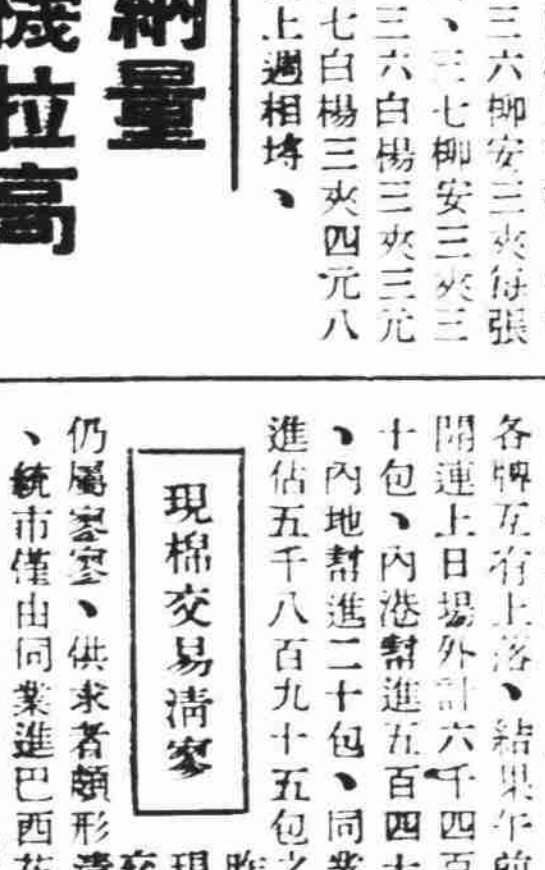 三六柳安三夾每張
、三七柳安三夾三
三六白楊三夾三元
七白楊三夾四元八
上週相埒、
納量
機拉高
各牌互有上落、結果午前
開連上日場外計六千四百
十包、內港幫進五百四十
、內地幫進二十包、同業
進佔五千八百九十五包之
現棉交易清寥
昨
現
交
仍屬寥寥、供求者頗形清
、統市僅由同業進巴西花